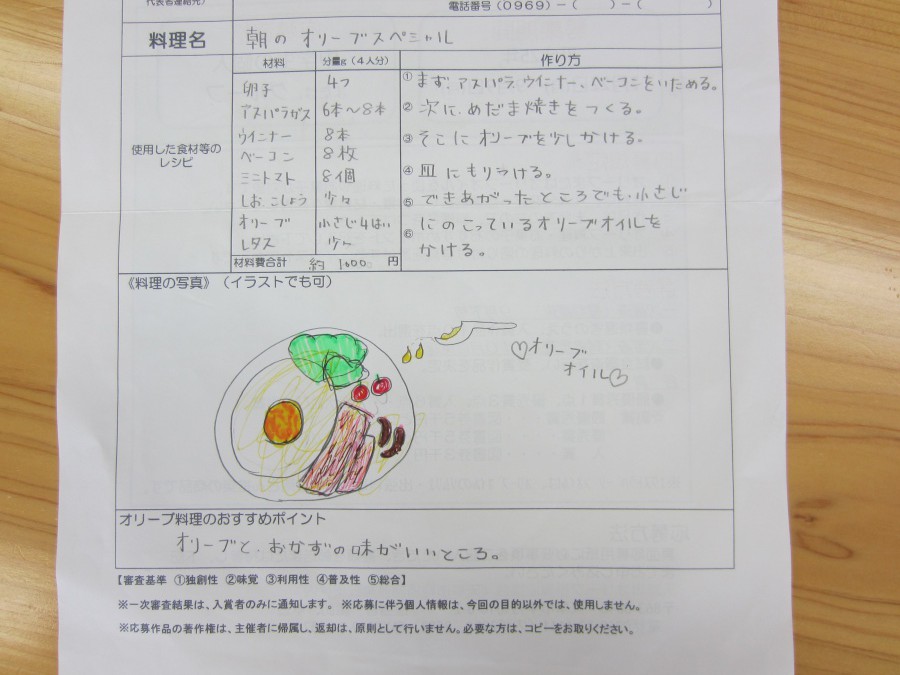 代表者連絡先)
電話番号(0969)-( )-( )
料理名 朝の オリーブスペシャル
使用した食材等のレシピ
材料 分量g(4人分) 作り方
卵子 4つ
アスパラガス 6本〜8本
ウインナー 8本
ベーコン 8枚
ミニトマト 8個
しお、こしょう 少々
オリーブ 小さじ4はい
レタス 少々
材料費合計 約 1600 円
① まず、アスパラ、ウインナー、ベーコンをいためる。
② 次に、めだま焼きをつくる。
③ そこに オリーブを少しかける。
④ 皿にもりつける。
⑤ できあがったところでも、小さじ
⑥ にのこっているオリーブオイルを
かける。
《料理の写真》(イラストでも可)
♡オリーブ
オイル♡
オリーブ料理のおすすめポイント
オリーブと、おかずの味がいいところ。
【審査基準 ①独創性 ②味覚 ③利用性 ④普及性 ⑤総合】
※一次審査結果は、入賞者のみに通知します。 ※応募に伴う個人情報は、今回の目的以外では、使用しません。
※応募作品の著作権は、主催者に帰属し、返却は、原則として行いません。必要な方は、コピーをお取りください。